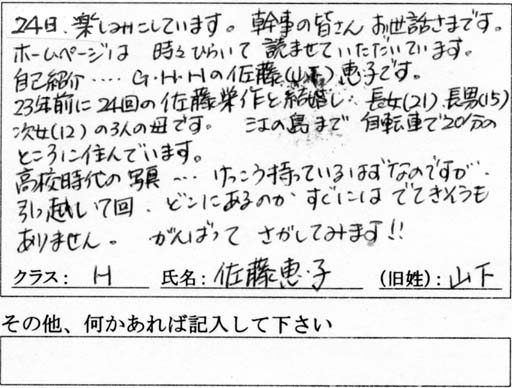 24日、楽しみにしています。幹事の皆さん お世話さまです。
ホームページは 時々ひらいて 読ませていただいています。
自己紹介‥‥G・H・Hの佐藤(山下)恵子です。
23年前に24回の佐藤栄作と結婚し、長女(21)、長男(15)
次女(12)の3人の母です。 江の島まで 自転車で20分の
ところに住んでいます。
高校時代の写真…けっこう持っているはずなのですが、
引っ越し7回、どこにあるのか すぐには でてきそうも
ありません。 がんばって さがしてみます!!
クラス: H 氏名:佐藤恵子 (旧姓):山下
その他、何かあれば記入して下さい